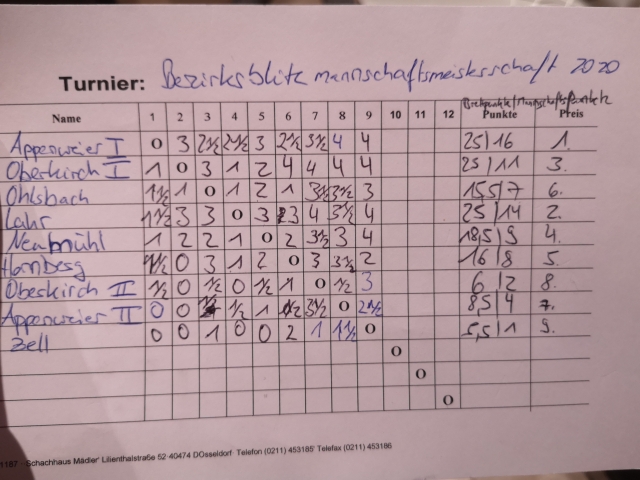 Turnier: Bezirksblitzmannschaftsmeisterschaft 2020
Brettpunkte/Mannschaftspunkte
Name 1 2 3 4 5 6 7 8 9 10 11 12 Punkte Preis
Appenweier I 0 3 2½ 2½ 3 2½ 3½ 4 4 25|16 1.
Oberkirch I 1 0 3 1 2 4 4 4 4 25|11 3.
Ohlsbach 1½ 1 0 1 2 1 3½ 3½ 3 15,5|7 6.
Lahr 1½ 3 3 0 3 3 4 3½ 4 25|14 2.
Neumühl 1 2 2 1 0 2 3½ 3 4 18,5|9 4.
Hornberg 1½ 0 3 1 2 0 3 3½ 2 16|8 5.
Oberkirch II ½ 0 ½ 0 ½ 1 0 ½ 3 6|2 8.
Appenweier II 0 0 ½ ½ 1 ½ 3½ 0 2½ 8,5|4 7.
Zell 0 0 1 0 0 2 1 1½ 0 5,5|1 9.
0
0
0
Schachhaus Mädler Lilienthalstraße 52 40474 DÜsseldorf Telefon (0211) 453185 Telefax (0211) 453186